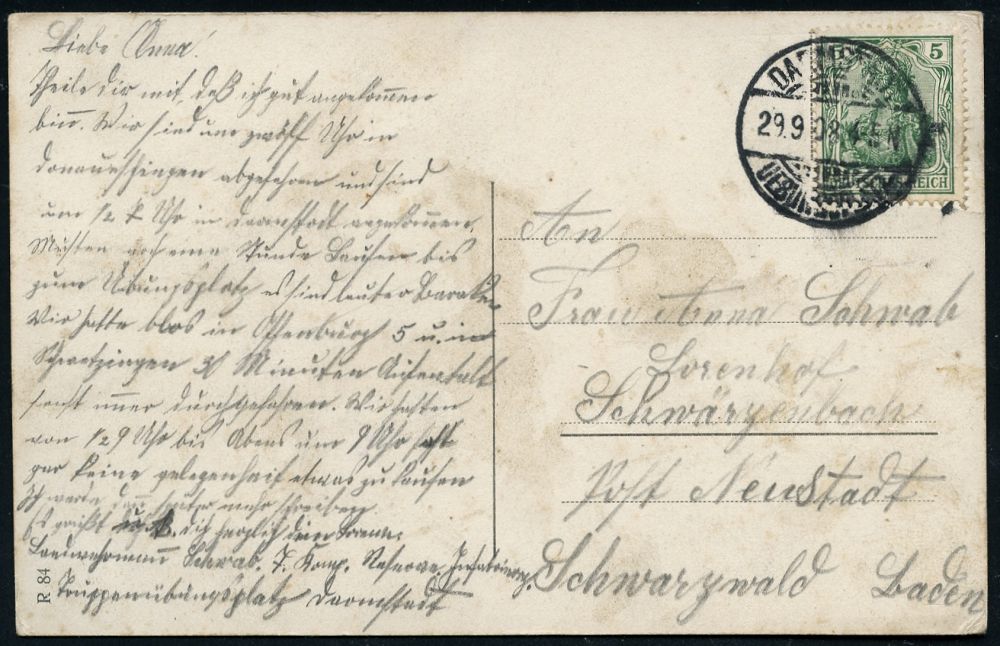 Liebe Anna!
Theile dir mit, daß ich gut angekommen
bin. Wir sind um zwölf Uhr in
donaueschingen abgefahren und sind
um 1/2 Uhr in darmstadt angekommen.
Mußten noch eine Stunde laufen bis
zum Übungsplatz es sind lauter Baraken
Wir hatte blos in Offenburg 5 u. in
Schwetzingen Minuten Aufentalt
sonst immer durchgefahren. Wir hatten
von 1/2 9 Uhr bis Abens um 9 Uhr
gar keine gelegenheit etwas zu kaufen
Ich werde dann später mehr schreiben
Es grüßt u. dich herzlich dein
Landwehrmann Schwab. 7. Komp. Reserve
Truppenübungsplatz darmstadt
R 84
5
REICH
29.9.08
An
Frau Anna Schwab
Lorenhof
Schwärzenbach
Post Neustadt
Schwarzwald Baden